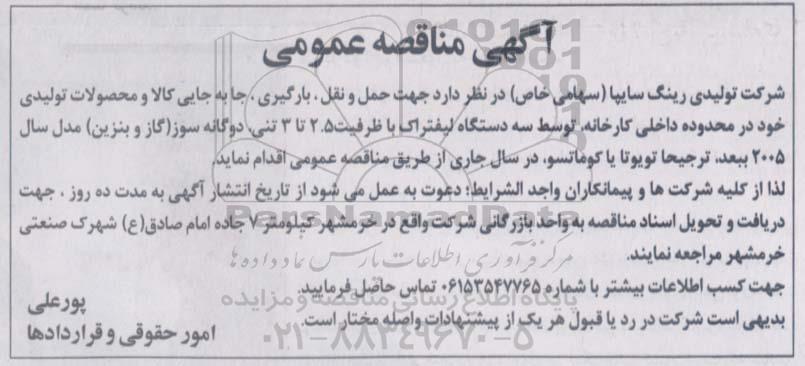 آگهی مناقصه عمومی
شرکت تولیدی رینگ سایپا (سهامی خاص) در نظر دارد جهت حمل و نقل ، بارگیری ، جا به جایی کالا و محصولات تولیدی
خود در محدوده داخلی کارخانه، توسط سه دستگاه لیفتراک با ظرفیت۲.۵ تا ۳ تنی، دوگانه سوز(گاز و بنزین) مدل سال
۲۰۰۵ ببعد، ترجیحا تویوتا یا کوماتسو، در سال جاری از طریق مناقصه عمومی اقدام نماید.
لذا از کلیه شرکت ها و پیمانکاران واجد الشرایط؛ دعوت به عمل می شود از تاریخ انتشار آگهی به مدت ده روز ، جهت
دریافت و تحویل اسناد مناقصه به واحد بازرگانی شرکت واقع در خرمشهر کیلومتر ۷ جاده امام صادق(ع) شهرک صنعتی
خرمشهر مراجعه نمایند.
جهت کسب اطلاعات بیشتر با شماره ۰۶۱۵۳۵۴۷۷۶۵ تماس حاصل فرمایید.
بدیهی است شرکت در رد یا قبول هر یک از پیشنهادات واصله مختار است.
پورعلی
امور حقوقی و قراردادها
ParsNamadData
مرکز فرآوری اطلاعات پارس نماد داده ها
پایگاه اطلاع رسانی مناقصه و مزایده
۰۲۱-۸۸۳۴۹۶۷۰-۵